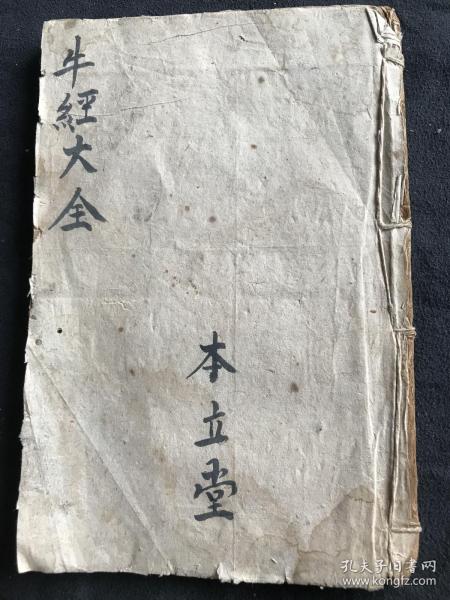 牛經大全
本立堂
孔夫子旧书网
www.kongfz.com